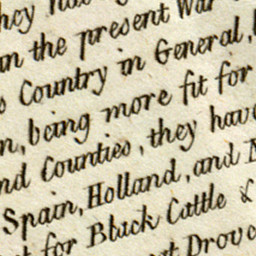 they ha
in the present War
Country in General,
n, being more fit for
nd Counties, they have
Spain, Holland, and
for Black Cattle &
Drov